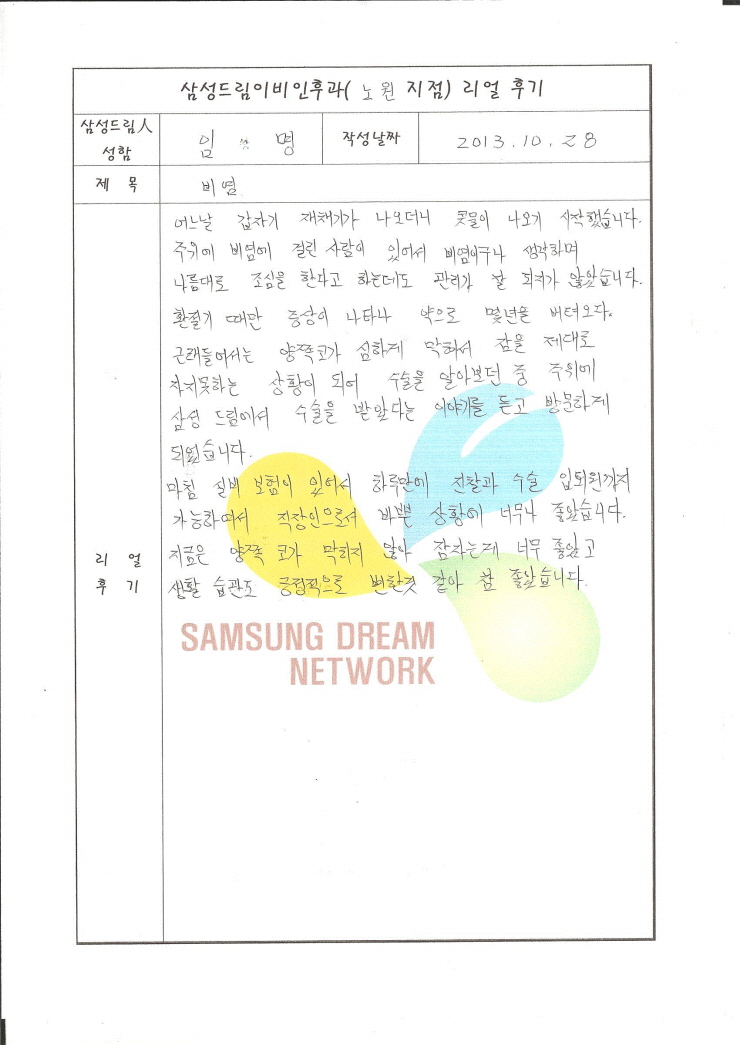 삼성드림이비인후과( 노원 지점) 리얼 후기
삼성드림人
성함
임 명
작성날짜
2013. 10. 28
제 목
비염
어느날 갑자기 재채기가 나오더니 콧물이 나오기 시작했습니다.
주위에 비염에 걸린 사람이 있어서 비염이구나 생각하며
나름대로 조심을 한다고 하는데도 관리가 잘 되지가 않았습니다.
환절기 때만 증상이 나타나 약으로 몇년을 버텨오다.
근래들어서는 양쪽코가 심하게 막혀서 잠을 제대로
자지못하는 상황이 되어 수술을 알아보던 중 주위에
삼성 드림에서 수술을 받았다는 이야기를 듣고 방문하게
되었습니다.
마침 실비 보험이 있어서 하루만에 진찰과 수술 입퇴원까지
가능하여서 직장인으로서 바쁜 상황에 너무나 좋았습니다.
지금은 양쪽 코가 막히지 않아 잠자는게 너무 좋았고
생활 습관도 긍정적으로 변한것 같아 참 좋았습니다.
리 얼
후 기
SAMSUNG DREAM
NETWORK